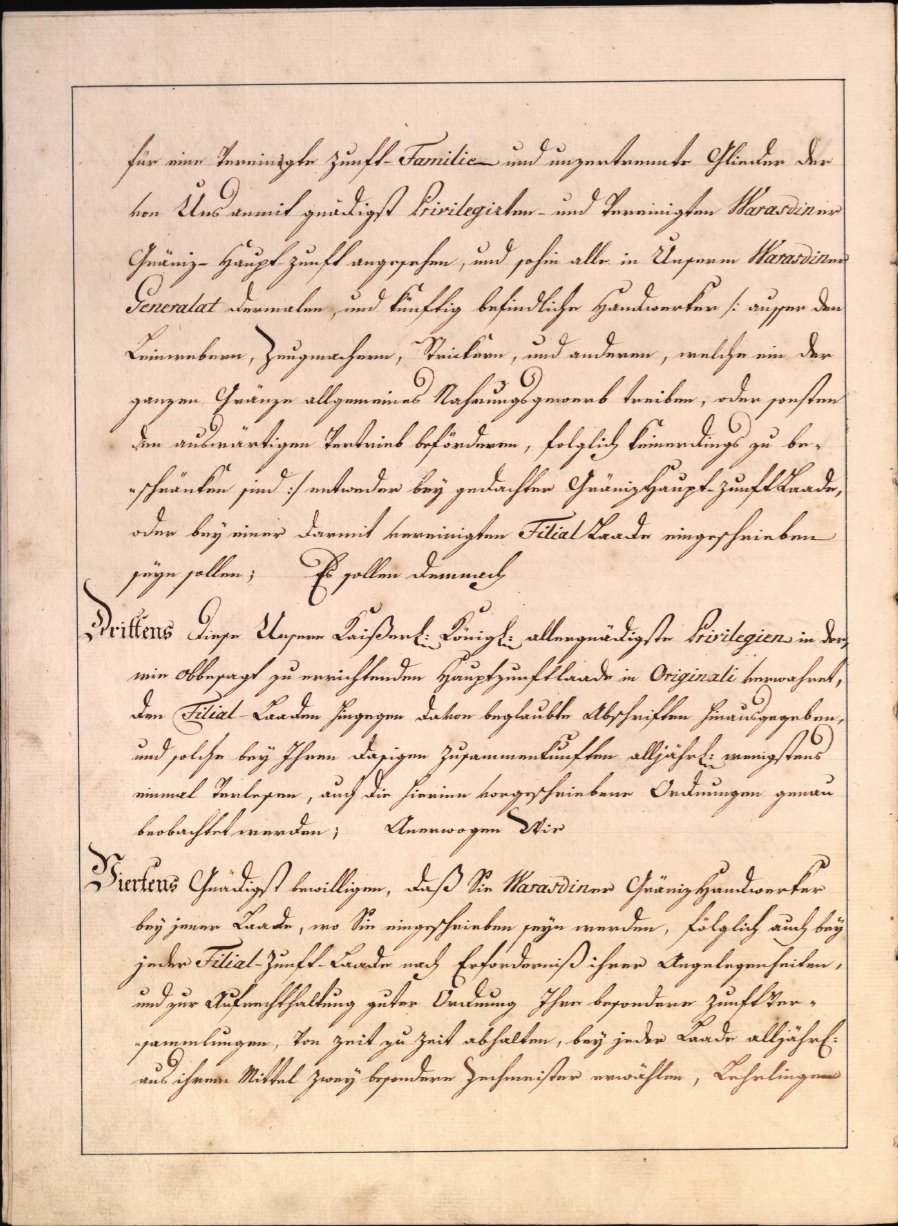 für eine Vereinigte Zunft-Familie und unzertrennte Glieder der
von Uns anmit gnädigst Privilegirten- und Vereinigten Warasdiner
Gräniz-Haupt-Zunft angesehen, und sohin alle in Unserm Warasdiner
Generalat dermalen, und künftig befindliche Handwerker /: ausser den
Leinwebern, Zeugmachern, Strickern, und anderen, welche ein der
ganzen Gränze allgemeines Nahrungsgewerb treiben, oder sonsten
den auswärtigen Vertrieb beförderen, folglich keinerdings zu be-
-schränken sind :/ entweder bey gedachter Gräniz Haupt-Zunft Laade,
oder bey einer darmit vereinigten Filial Laade eingeschrieben
seyn sollen; Es sollen demnach
Drittens diese Unsere Kaißerl: Königl: allergnädigste Privilegien in der,
wie obbesagt zu errichtenden Hauptzunftlaade in Originali verwahret,
den Filial-Laaden hingegen davon beglaubte Abschriften hinausgegeben,
und solche bey Ihren dasigen Zusammenkunften alljährl: wenigstens
einmal Verlesen, auch die hierinn vorgeschriebene Ordnungen genau
beobachtet werden; Anerwogen Wir
Viertens Gnädigst bewilligen, daß Sie Warasdiner Gräniz Handwerker
bey jener Laade, wo Sie eingeschrieben seyn werden, fölglich auch bey
jeder Filial-Zunft-Laade nach Erforderniß ihrer Angelegenheiten,
und zur Aufrechthaltung guter Ordnung Ihre besondere Zunft Ver-
-sammlungen, Von Zeit zu Zeit abhalten, bey jeder Laade alljährl:
aus ihrem Mittel zwey besondere Zechmeister erwählen, Lehrlinge